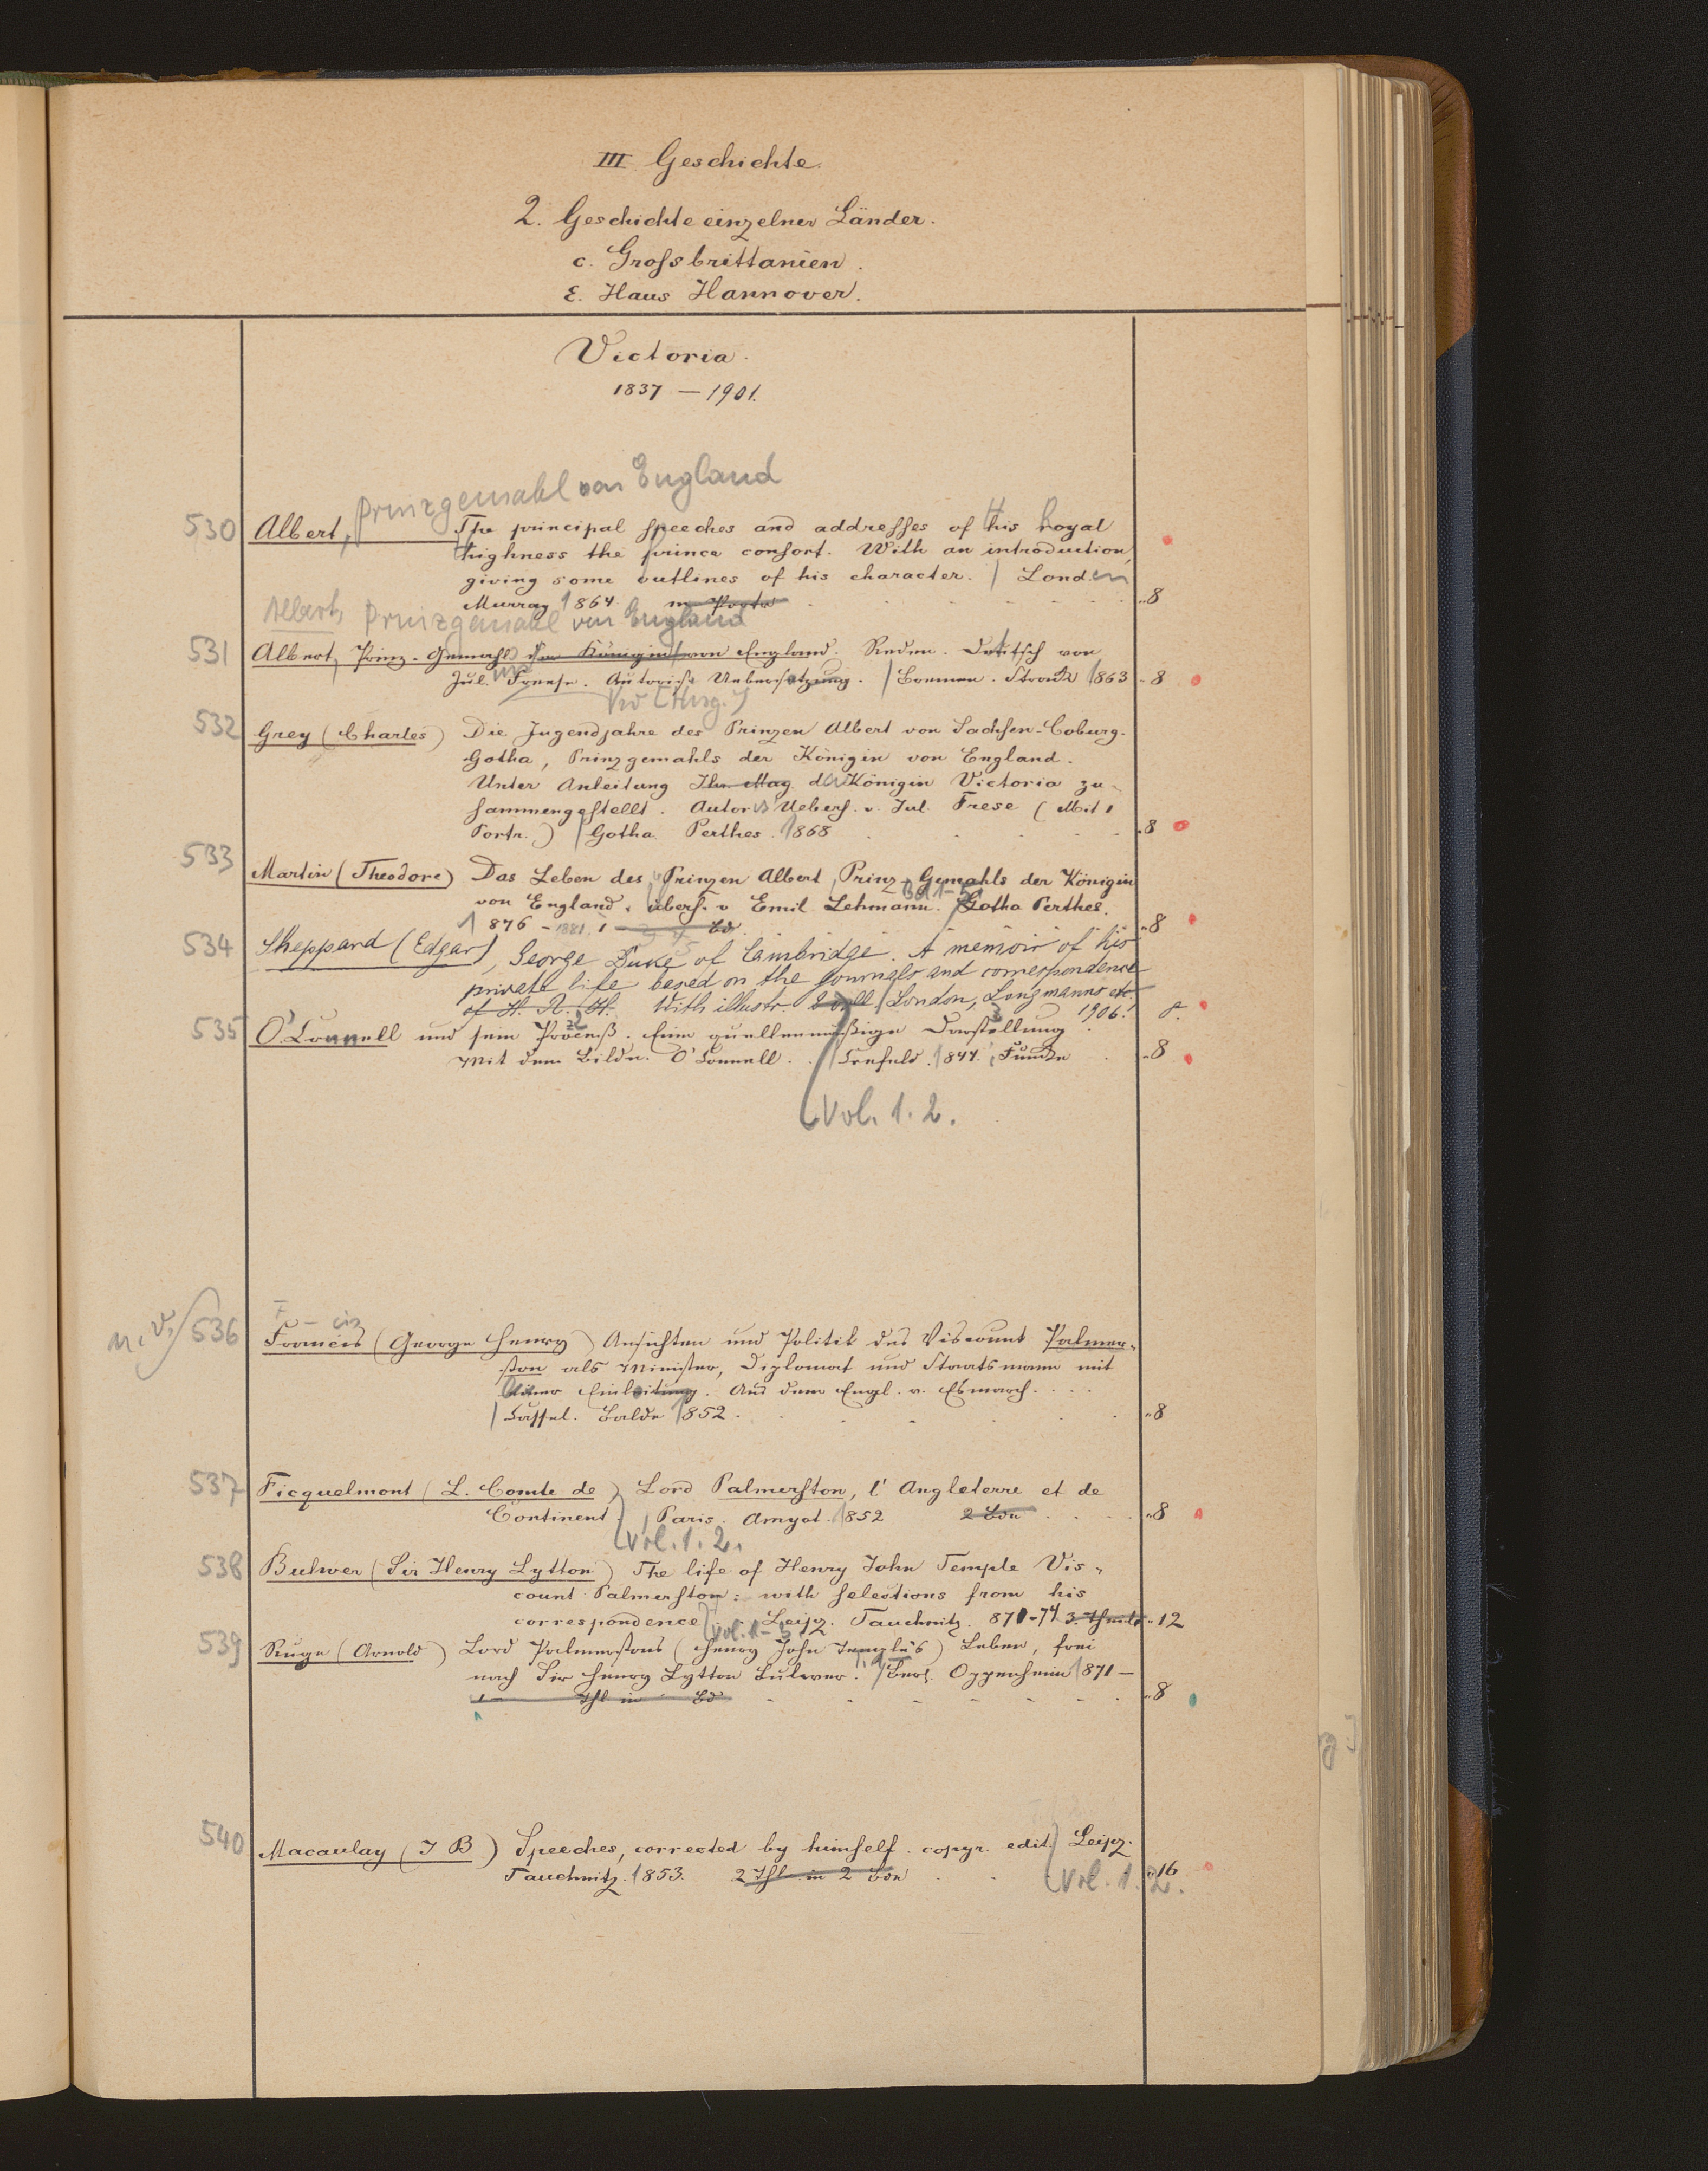 III Geschichte.
2. Geschichte einzelner Länder.
c. Grossbrittanien.
ε. Haus Hannover.
Victoria.
1837 – 1901.
Prinzgemahl von England
530 Albert, The principal speeches and addresses of His Royal
Highness the prince consort. With an introduction,
giving some outlines of his character. / London
Murray 1864. m. Portr. „8
Albert, Prinzgemahl von England
531 Albert, Prinz-Gemahl der Königin von England. Reden. Deutsch von
Jul. Frese. Autoris. Uebersetzung. / Bremen. Strack 1863 „8
(Hrsg.)
532 Grey (Charles) Die Jugendjahre des Prinzen Albert von Sachsen-Coburg-
Gotha, Prinzgemahls der Königin von England.
Unter Anleitung Ihr. Maj. der Königin Victoria zu-
sammengestellt. Autoris. Uebers. v. Jul. Frese (Mit 1
Portr.) / Gotha. Perthes. 1868 „8
533 Martin (Theodore) Das Leben des Prinzen Albert, Prinz-Gemahls der Königin
von England, übers. v Emil Lehmann. Bd 1-5 / Gotha Perthes.
1876 – 1881. 1 – Bd. „8
534 Sheppard (Edgar), George Duke of Cambridge. A memoir of his
private life based on the journals and correspondence
of H. R. H. With illustr. 2 voll / London, Longmanns etc.
1906. 8.
535 O'Connell und sein Proceß. Eine quellenmäßige Darstellung
Mit dem Bilde O'Connell. / Crefeld. 1844. Funcke „8
Vol. 1. 2.
n. v. / 536 Francis (George Henry) Ansichten und Politik des Viscount Palmer-
ston als Minister, Diplomat und Staatsmann mit
einer Einleitung. Aus dem Engl. v. Esmarch.
/ Cassel. Balde 1852. „8
537 Ficquelmont (L. Comte de) Lord Palmerston, l'Angleterre et de
Continent. / Paris. Amyot. 1852 2 Bde „8
Vol. 1. 2.
538 Bulwer (Sir Henry Lytton) The life of Henry John Temple Vis-
count Palmerston: with selections from his
correspondence. Leipz. Tauchnitz. 871-74 3 Theile „12
Vol. 1-3
539 Ruge (Arnold) Lord Palmerstons (Henry John Temple's) Leben, frei
nach Sir Henry Lytton Bulwer. / Berl. Oppenheim 1871 –
1 – Thl in Bd „8
540 Macaulay (T B) Speeches, corrected by himself. copyr. edit. Leipz.
Tauchnitz. 1853. 2 Thl. in 2 Bde „16
Vol. 1. 2.